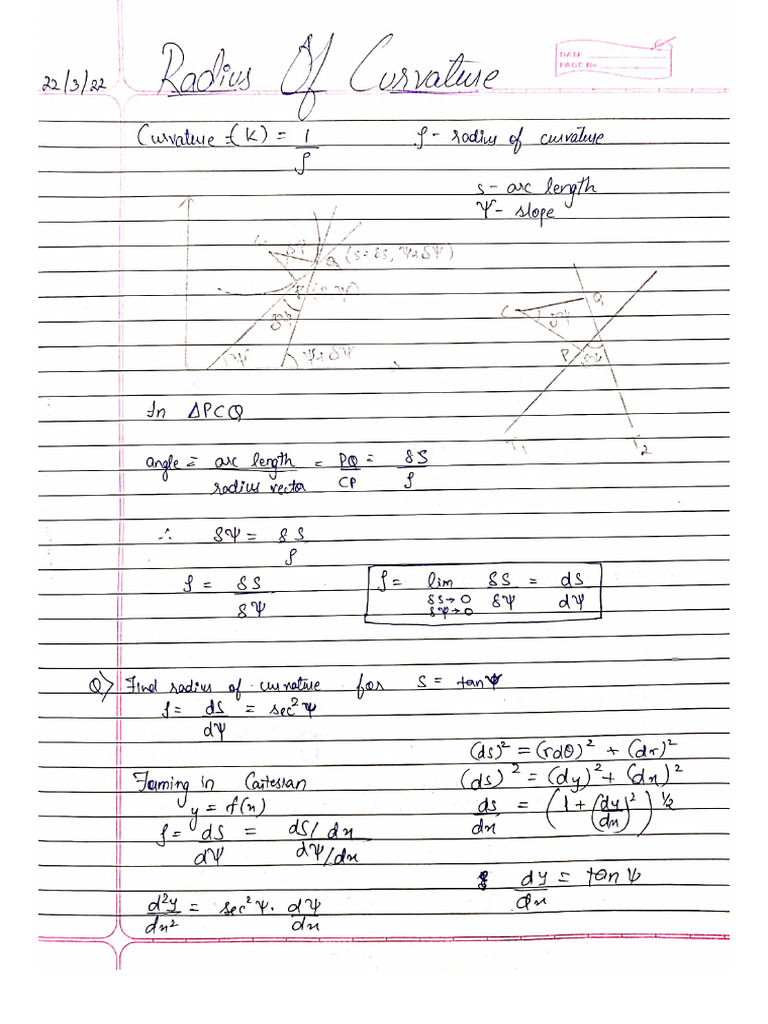 22/3/22 Radius Of Curvature
DATE
PAGE No.
Curvature -(K) = 1/ρ ρ - radius of curvature
s - arc length
Ψ - slope
δΨ
Q (s+δs, Ψ+δΨ)
δΨ
Ψ Ψ+δΨ
C Q
δΨ
P δΨ
T1 T2
In ΔPCQ
angle = arc length / radius vector = PQ / CP = δS / ρ
∴ δΨ = δS / ρ
ρ = δS / δΨ
ρ = lim δS→0 δΨ→0 δS / δΨ = dS / dΨ
Q) Find radius of curvature for S = tanΨ
ρ = dS / dΨ = sec²Ψ
(ds)² = (rdθ)² + (dr)²
Forming in Cartesian (ds)² = (dy)² + (dx)²
y = f(x) ds/dx = (1 + (dy/dx)²)^1/2
ρ = dS / dΨ = dS/dx / dΨ/dx
dy/dx = tanΨ
d²y/dx² = sec²Ψ. dΨ/dx